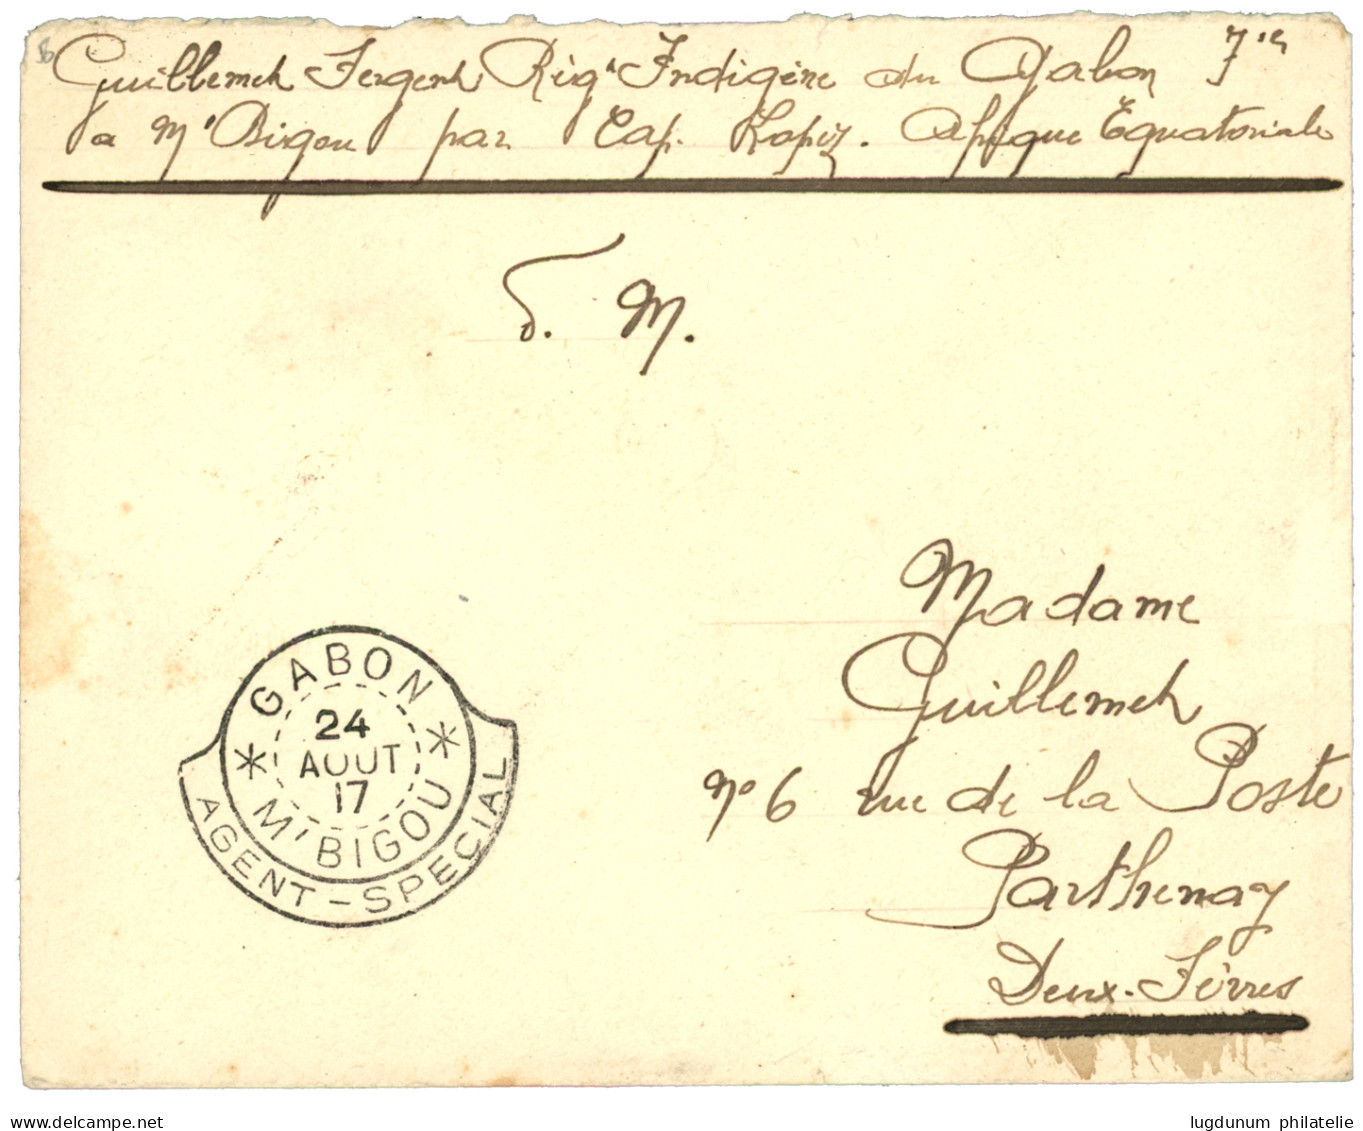 Guillemet Sergent Règt Indigène du Gabon 7ie
a M'Bigou par Cap. Lopez. Afrique Equatoriale
S. M.
Madame
Guillemet
No 6 rue de la Poste
Parthenay
Deux-Sèvres
GABON
24
AOUT
17
M'BIGOU
AGENT-SPECIAL
delcampe.net
lugdunum philatelie